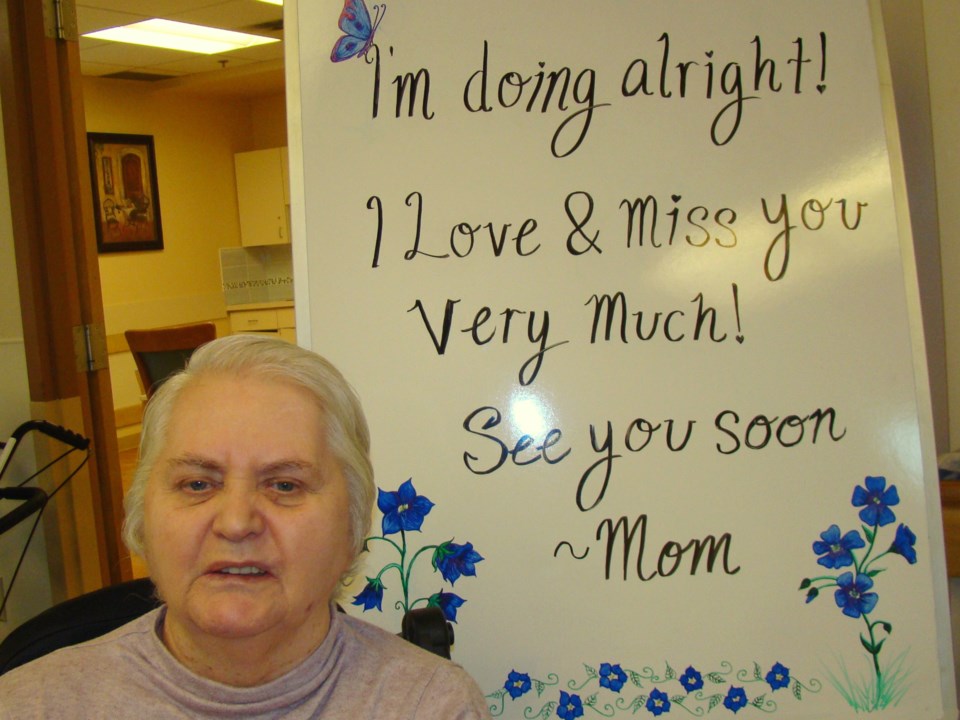 I'm doing alright!
I Love & Miss you
Very Much!
See you soon
~Mom